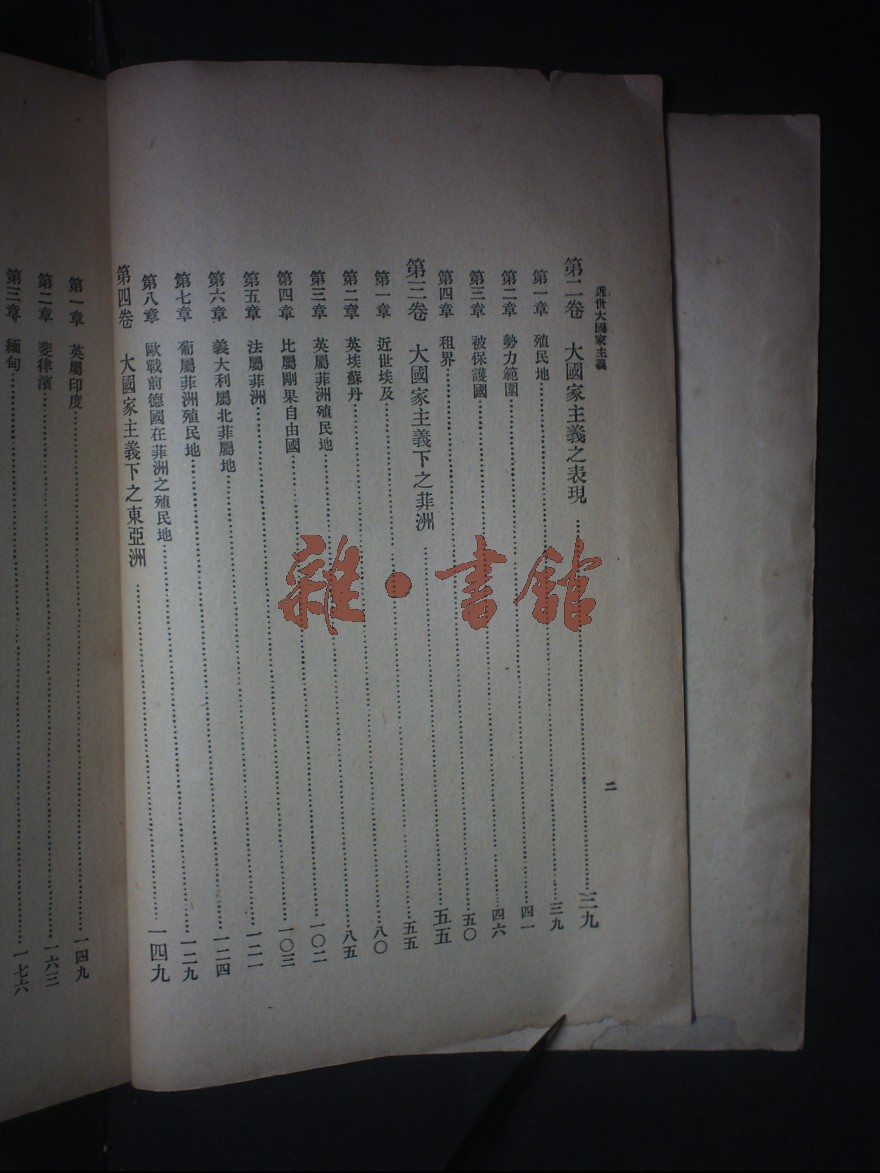 近世大國家主義
二
第二卷 大國家主義之表現……三九
第一章 殖民地……三九
第二章 勢力範圍……四一
第三章 被保護國……四六
第四章 租界……五〇
第三卷 大國家主義下之菲洲……五五
第一章 近世埃及……五五
第二章 英埃蘇丹……八〇
第三章 英屬菲洲殖民地……八五
第四章 比屬剛果自由國……一〇二
第五章 法屬菲洲……一〇三
第六章 義大利屬北菲屬地……一二一
第七章 葡屬菲洲殖民地……一二四
第八章 歐戰前德國在菲洲之殖民地……一二九
第四卷 大國家主義下之東亞洲……一四九
第一章 英屬印度……一四九
第二章 斐律濱……一六三
第三章 緬甸……一七六
雜·書館